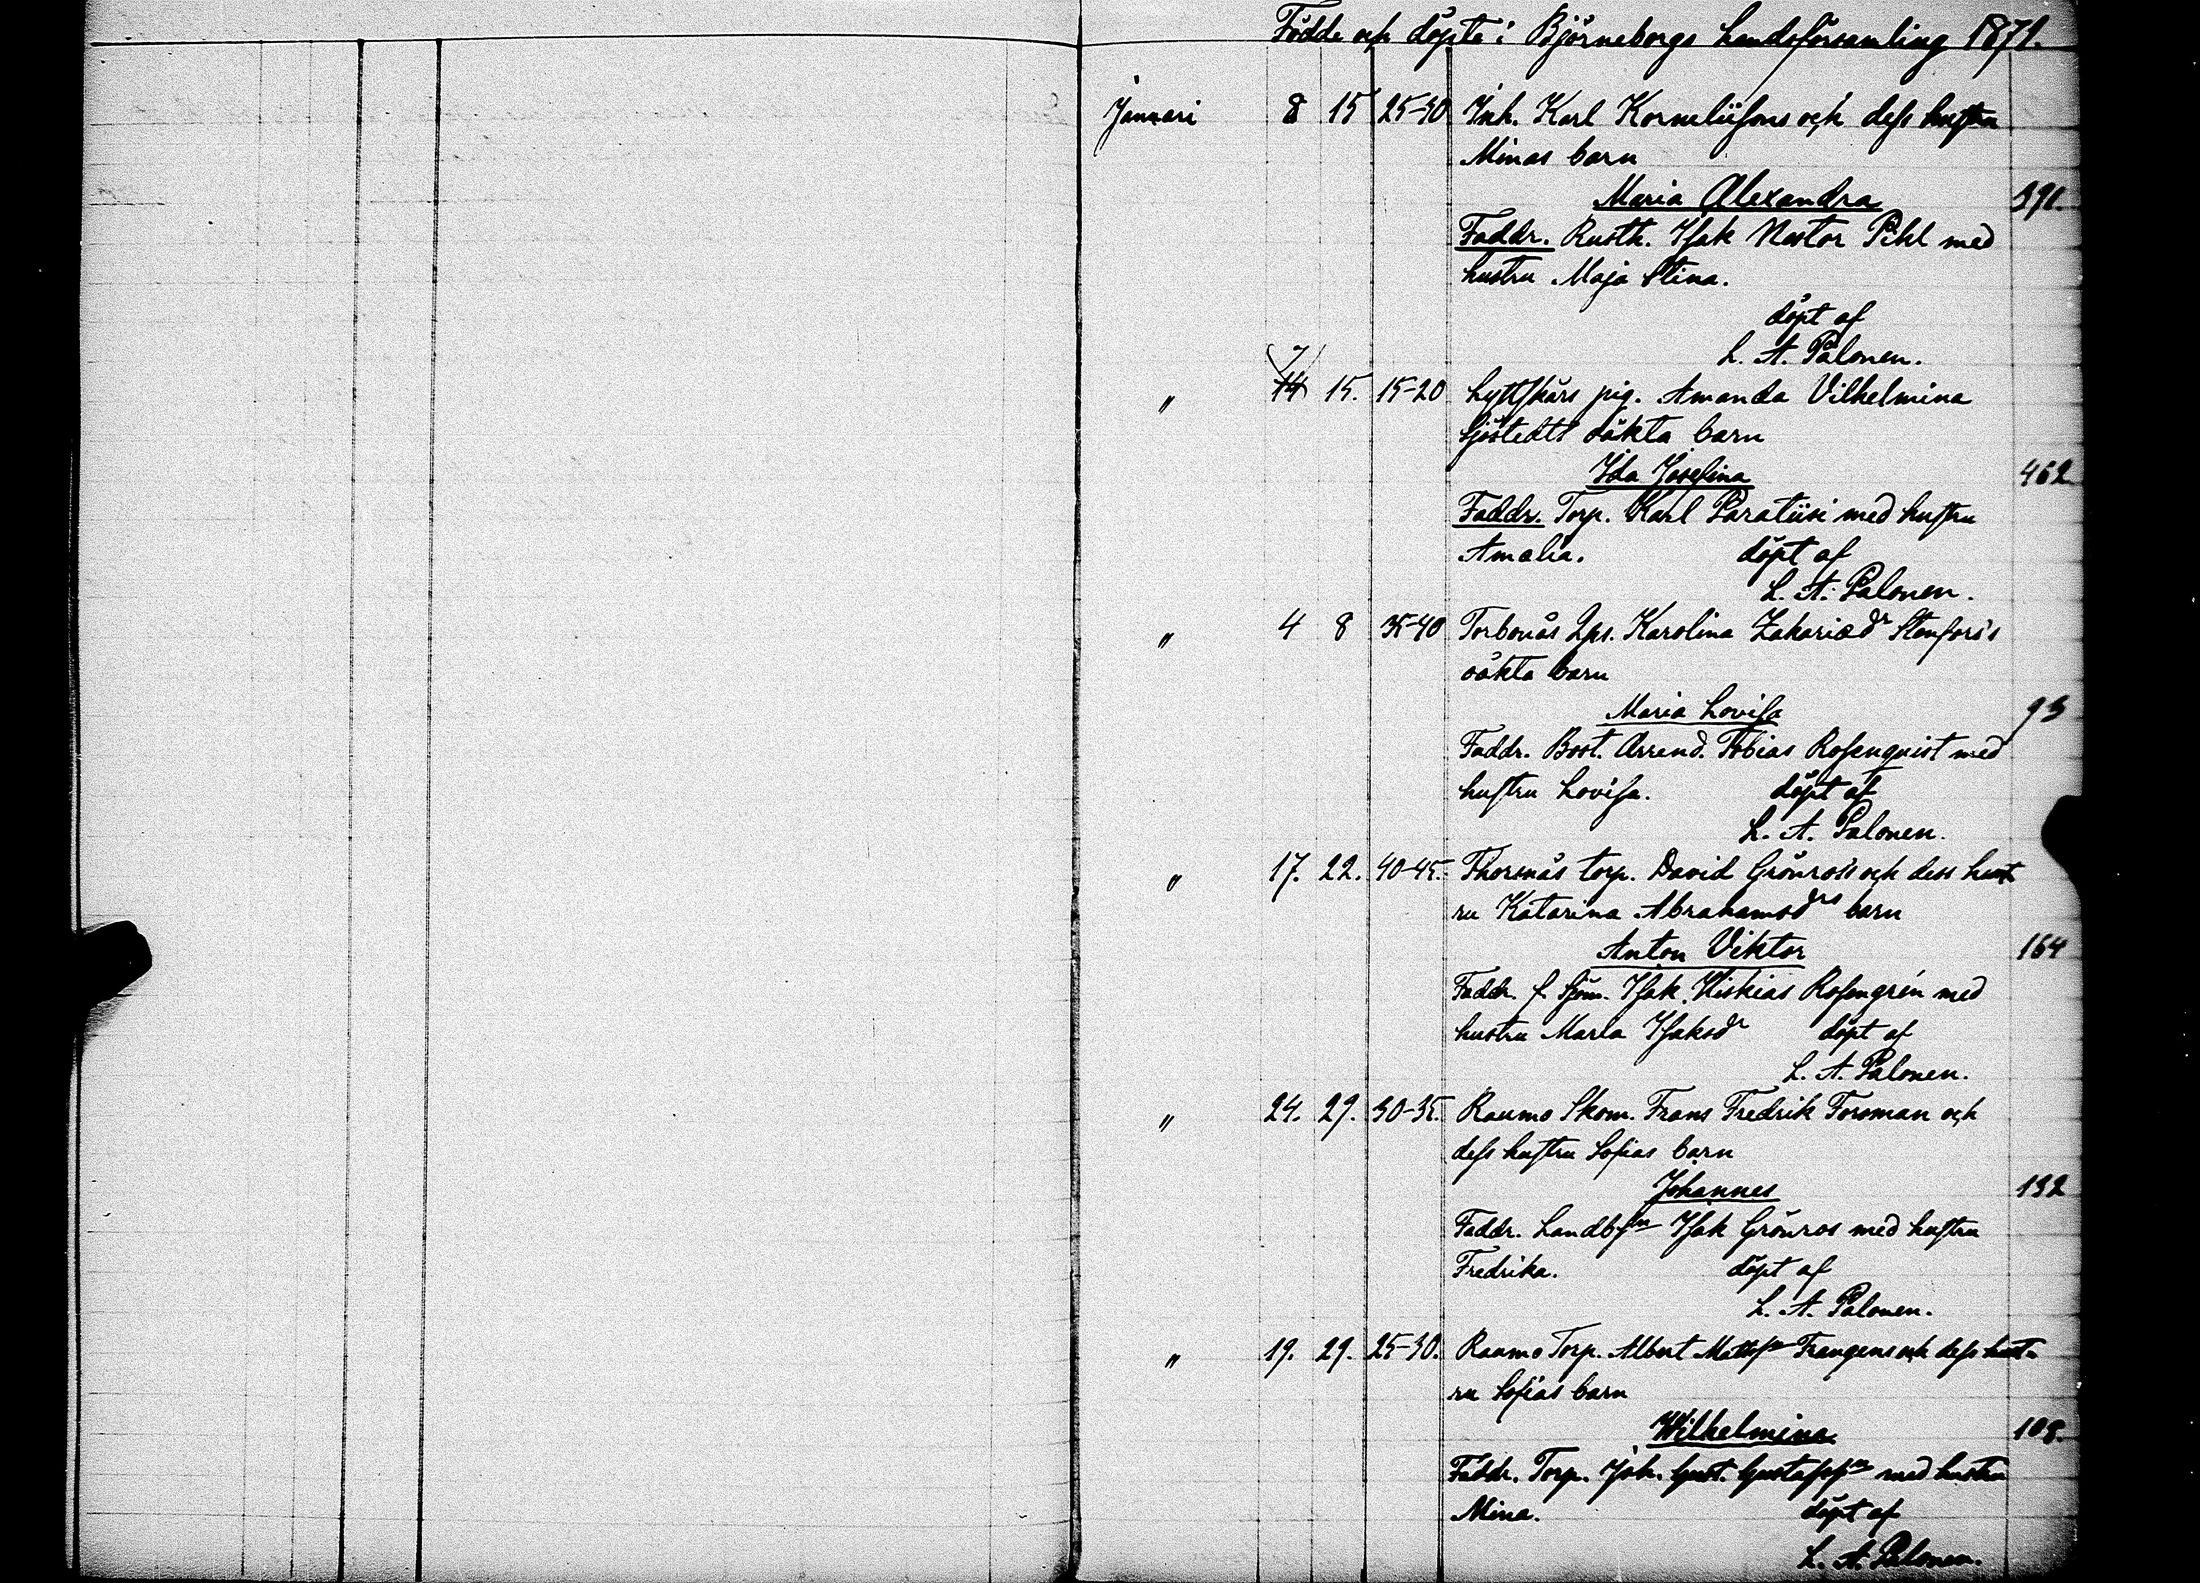 Födde och döpte i Björneborgs Landsförsamling 1871.
Januari 8 15 25-30 Inh. Karl Korneliifsons och defs hustru
Minas barn
Maria Alexandra 391.
Faddr. Rusth. Isak Nestor Pihl med
hustru Maja Stina.
döpt af
L. A. Palonen.
7
" 14 15. 15-20 Lyttskärs pig. Amanda Vilhelmina
Sjöstedts oäkta barn
Ida Josefina 462
Faddr. Torp. Karl Paratiisi med hustru
Amalia. döpt af
L. A. Palonen.
" 4 8 35-40 Torbonäs Karolina Zakariædr Stenfors's
oäkta barn
Maria Lovisa 93
Faddr. Bost. Arrend. Tobias Rosenqvist med
hustru Lovisa. döpt af
L. A. Palonen.
" 17. 22. 40-45. Thorsnäs torp. David Grönros's och dess hust
ru Katarina Abrahamsdrs barn
Anton Viktor 164
Faddr. f. Sjöm. Isak Hiskias Rosengrén med
hustru Maria Isaksdr döpt af
L. A. Palonen.
" 24. 29. 30-35. Raumo Skom. Frans Fredrik Forsman och
defs hustru Sofias barn
Johannes 132
Faddr. Landbsn Isak Grönros med hustru
Fredrika. döpt af
L. A. Palonen.
" 19. 29. 25-30. Raumo Torp. Albert Mattsn Frangens och defs hust-
ru Sofias barn
Wilhelmina 108.
Faddr. Torp. Joh. Gust. Gustafssn med hustru
Mina. döpt af
L. A. Palonen.